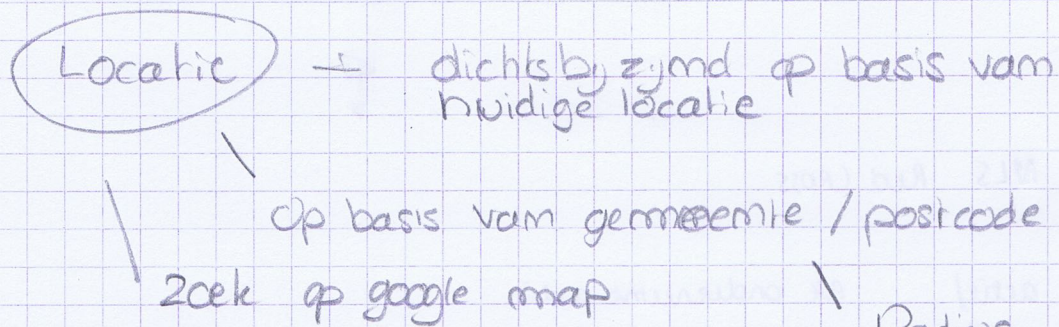 Locatie — dichtsbijzijnd op basis van
huidige locatie
op basis van gemeente / postcode
zoek op google map